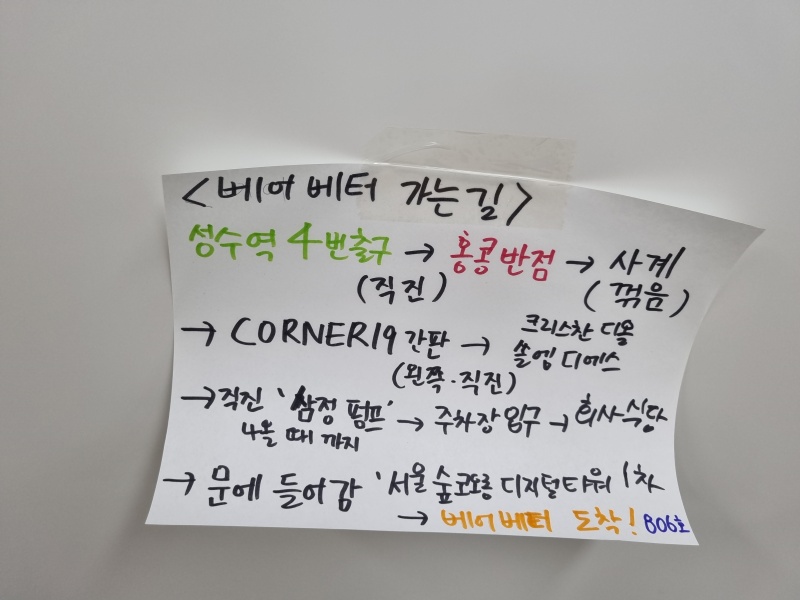 <베어베터 가는길>
성수역 4번출구 → 홍콩반점 → 사계
(직진) (꺾음)
→ CORNER19 간판 → 크리스찬 디올
쏠엠 디에스
(왼쪽·직진)
→ 직진 '삼정 펌프' → 주차장 입구 → 회사식당
나올 때 까지
→ 문에 들어감 '서울숲코오롱 디지털타워 1차
→ 베어베터 도착! B06호